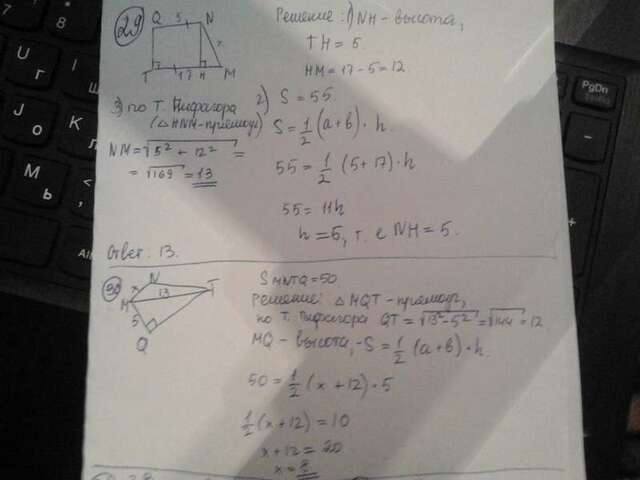 29
Q 5 N
T 17 H M
?
Решение: 1) NH - высота,
TH = 5.
HM = 17 - 5 = 12
2) S = 55
S = 1/2 (a + b) · h.
55 = 1/2 (5 + 17) · h
55 = 11h
h = 5, т. е NH = 5.
3) по Т. Пифагора
(△ HNM - прямоуг)
NM = √5² + 12² =
= √169 = 13
Ответ: 13.
30
N
x
M 13 T
5
Q
S MNTQ = 50.
Решение: △ MQT - прямоуг,
по Т. Пифагора QT = √13² - 5² = √144 = 12
MQ - высота, S = 1/2 (a + b) · h.
50 = 1/2 (x + 12) · 5
1/2 (x + 12) = 10
x + 12 = 20
x = 8
PgDn
U
Г
Ш
J
О
K
Л
Ь